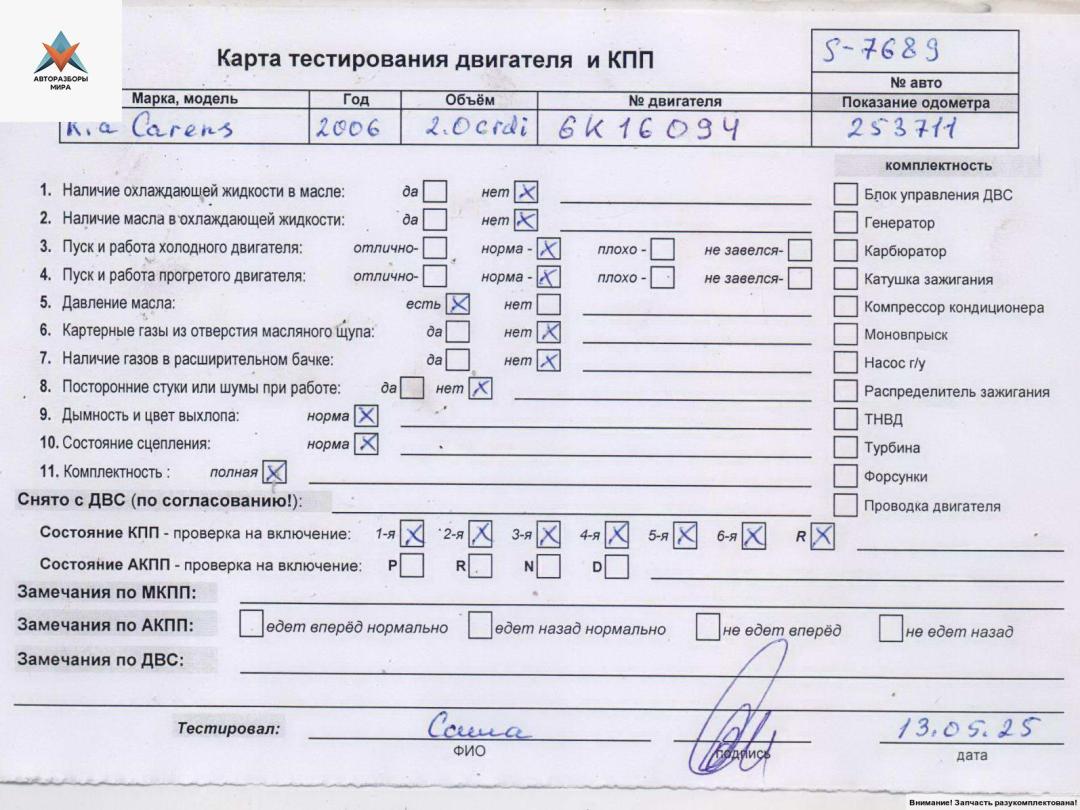 АВТОРАЗБОРЫ
МИРА
Карта тестирования двигателя и КПП
S-7689
№ авто
Марка, модель Год Объём № двигателя Показание одометра
Kia Carens 2006 2.0crdi 6K16094 253711
комплектность
1. Наличие охлаждающей жидкости в масле: да нет X
Блок управления ДВС
2. Наличие масла в охлаждающей жидкости: да нет X
Генератор
3. Пуск и работа холодного двигателя: отлично- норма - X плохо - не завелся-
Карбюратор
4. Пуск и работа прогретого двигателя: отлично- норма - X плохо - не завелся-
Катушка зажигания
5. Давление масла: есть X нет
Компрессор кондиционера
6. Картерные газы из отверстия масляного щупа: да нет X
Моновпрыск
7. Наличие газов в расширительном бачке: да нет X
Насос г/у
8. Посторонние стуки или шумы при работе: да нет X
Распределитель зажигания
9. Дымность и цвет выхлопа: норма X
ТНВД
10. Состояние сцепления: норма X
Турбина
11. Комплектность : полная X
Форсунки
Снято с ДВС (по согласованию!):
Проводка двигателя
Состояние КПП - проверка на включение: 1-я X 2-я X 3-я X 4-я X 5-я X 6-я X R X
Состояние АКПП - проверка на включение: P R N D
Замечания по МКПП:
Замечания по АКПП: едет вперёд нормально едет назад нормально не едет вперёд не едет назад
Замечания по ДВС:
Тестировал: Саша 13.05.25
ФИО подпись дата
Внимание! Запчасть разукомплектована!